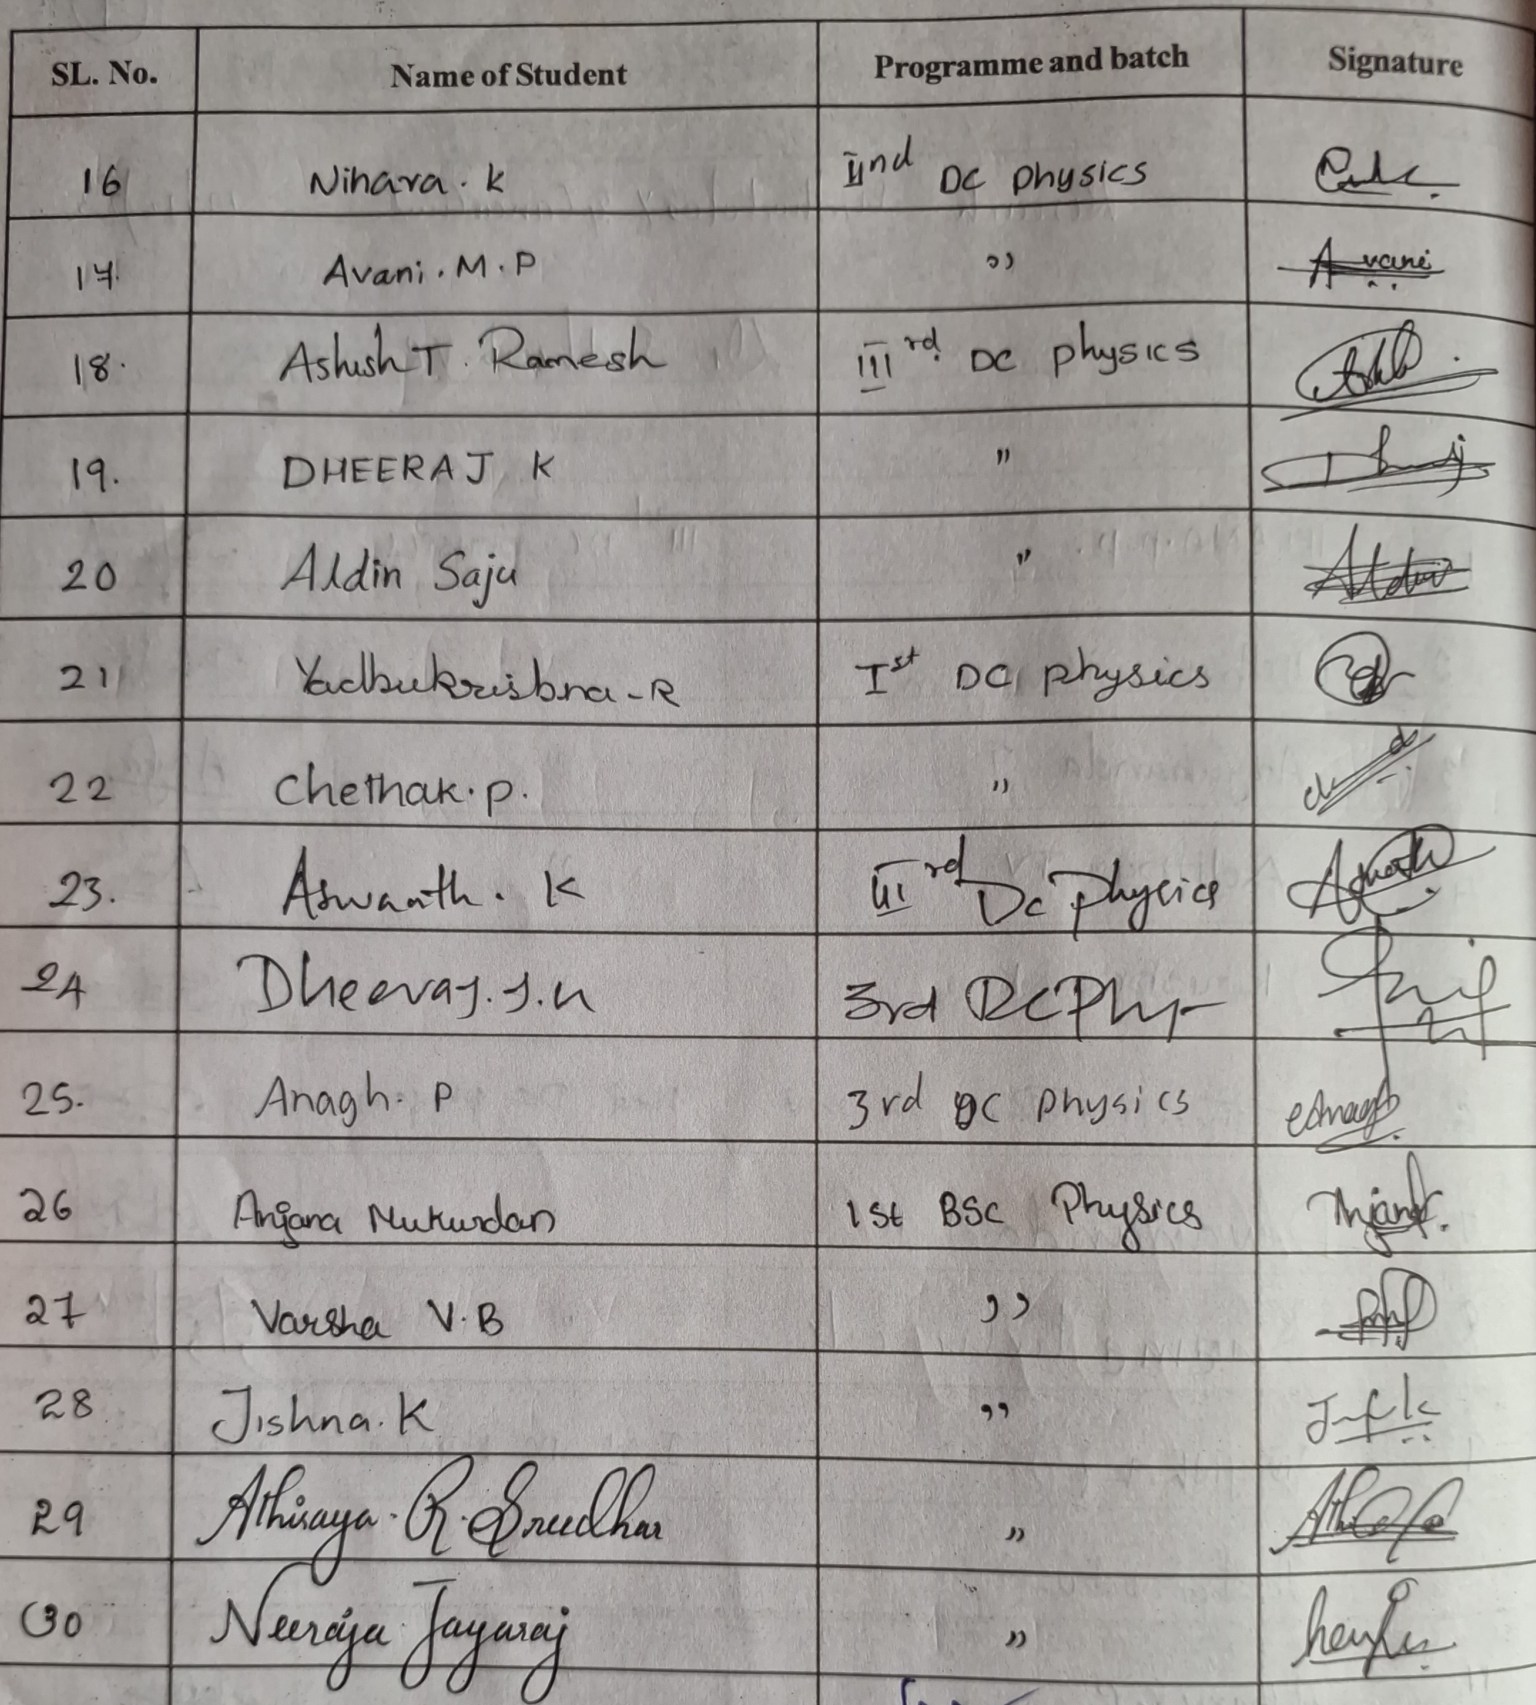 SL. No. Name of Student Programme and batch Signature
16 Nihara. K IInd DC Physics
17. Avani. M. P ,, Avani
18. Ashish T. Ramesh IIIrd DC physics
19. DHEERAJ K "
20 Aldin Saju " Aldin
21 Yadhukrishna-R Ist DC physics
22 Chethak. P. ,,
23. Aswanth. K IIIrd DC Physics
24 Dheeraj. J. K 3rd DCPhy
25. Anagh. P 3rd DC physics Anagh
26 Anjana Mukundan 1st BSc Physics Anjana.
27 Varsha V. B ,,
28 Jishna. K ,,
29 Athiraya. R. Sreedhar ,,
30 Neeraja Jayaraj ,,